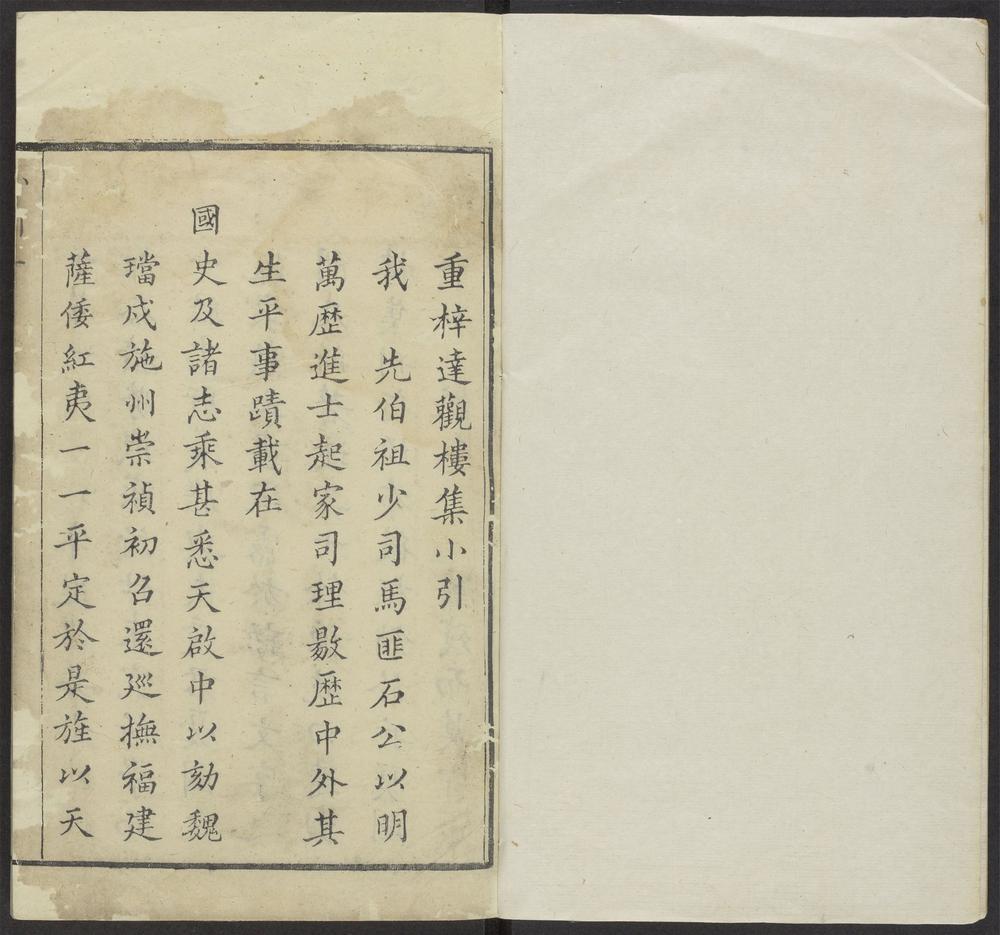 重梓達觀樓集小引
我　先伯祖少司馬匪石公以明
萬歷進士起家司理敭歷中外其
生平事蹟載在
國史及諸志乘甚悉天啟中以劾魏
璫戍施州崇禎初召還廵撫福建
薩倭紅夷一一平定於是旌以天